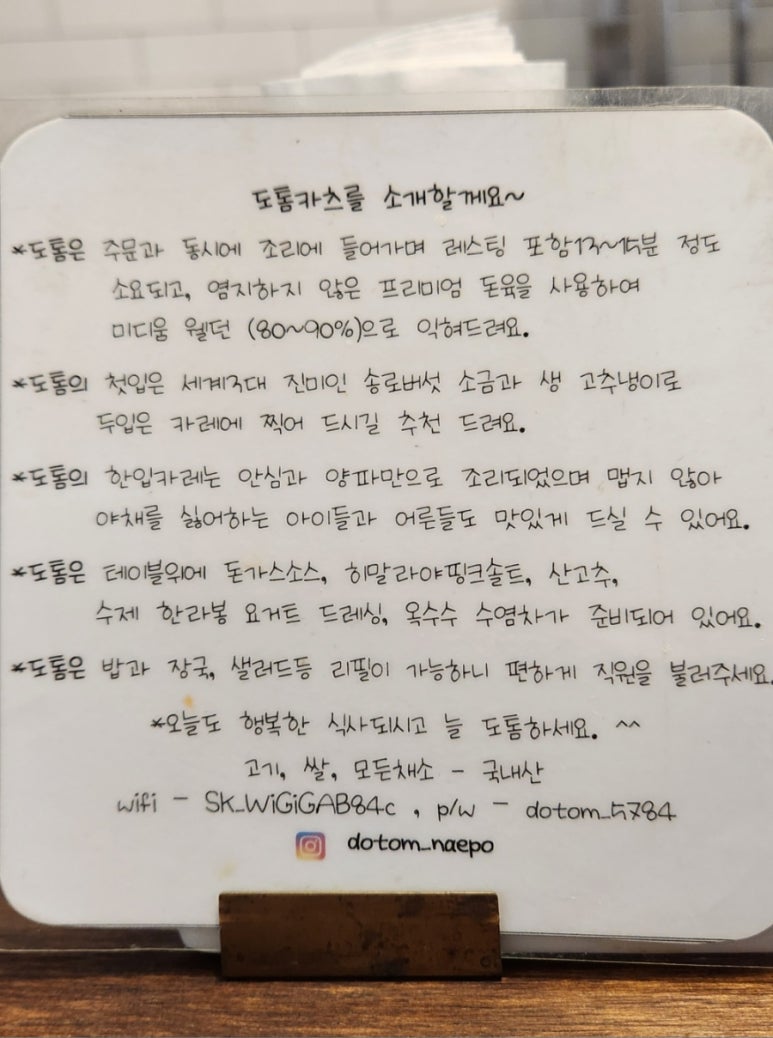 도톰카츠를 소개할게요~
*도톰은 주문과 동시에 조리에 들어가며 레스팅 포함13~15분 정도
소요되고, 염지하지 않은 프리미엄 돈육을 사용하여
미디움 웰던 (80~90%)으로 익혀드려요.
*도톰의 첫입은 세계3대 진미인 송로버섯 소금과 생 고추냉이로
두입은 카레에 찍어 드시길 추천 드려요.
*도톰의 한입카레는 안심과 양파만으로 조리되었으며 맵지 않아
야채를 싫어하는 아이들과 어른들도 맛있게 드실 수 있어요.
*도톰은 테이블위에 돈가스소스, 히말라야핑크솔트, 산고추,
수제 한라봉 요거트 드레싱, 옥수수 수염차가 준비되어 있어요.
*도톰은 밥과 장국, 샐러드등 리필이 가능하니 편하게 직원을 불러주세요.
*오늘도 행복한 식사되시고 늘 도톰하세요. ^^
고기, 쌀, 모든채소 - 국내산
wifi - SK_WiGiGAB84c , p/w - dotom_5784
dotom_naepo